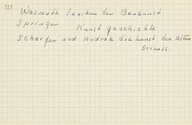 Wasmuth Lexikon der Baukunst
Springer Kunstgeschichte
Schäfer und Andrae Die Kunst des Alten
Orients